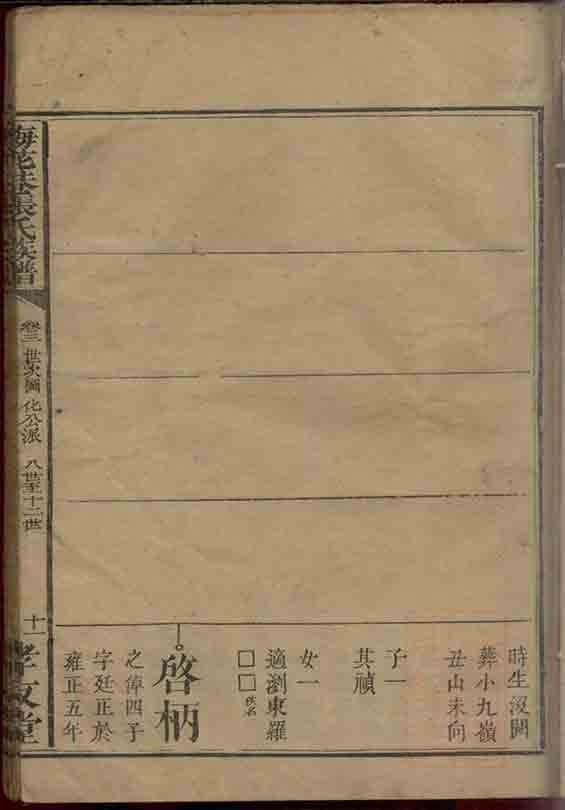 時生沒闕
葬小九嶺
丑山未向
子一
其禎
女一
適瀏東羅
□□氏名
啓柄
之倬四子
字廷正於
雍正五年
梅花巷張氏族譜
卷三 世次圖 化公派 八世至十二世
十一
孝友堂